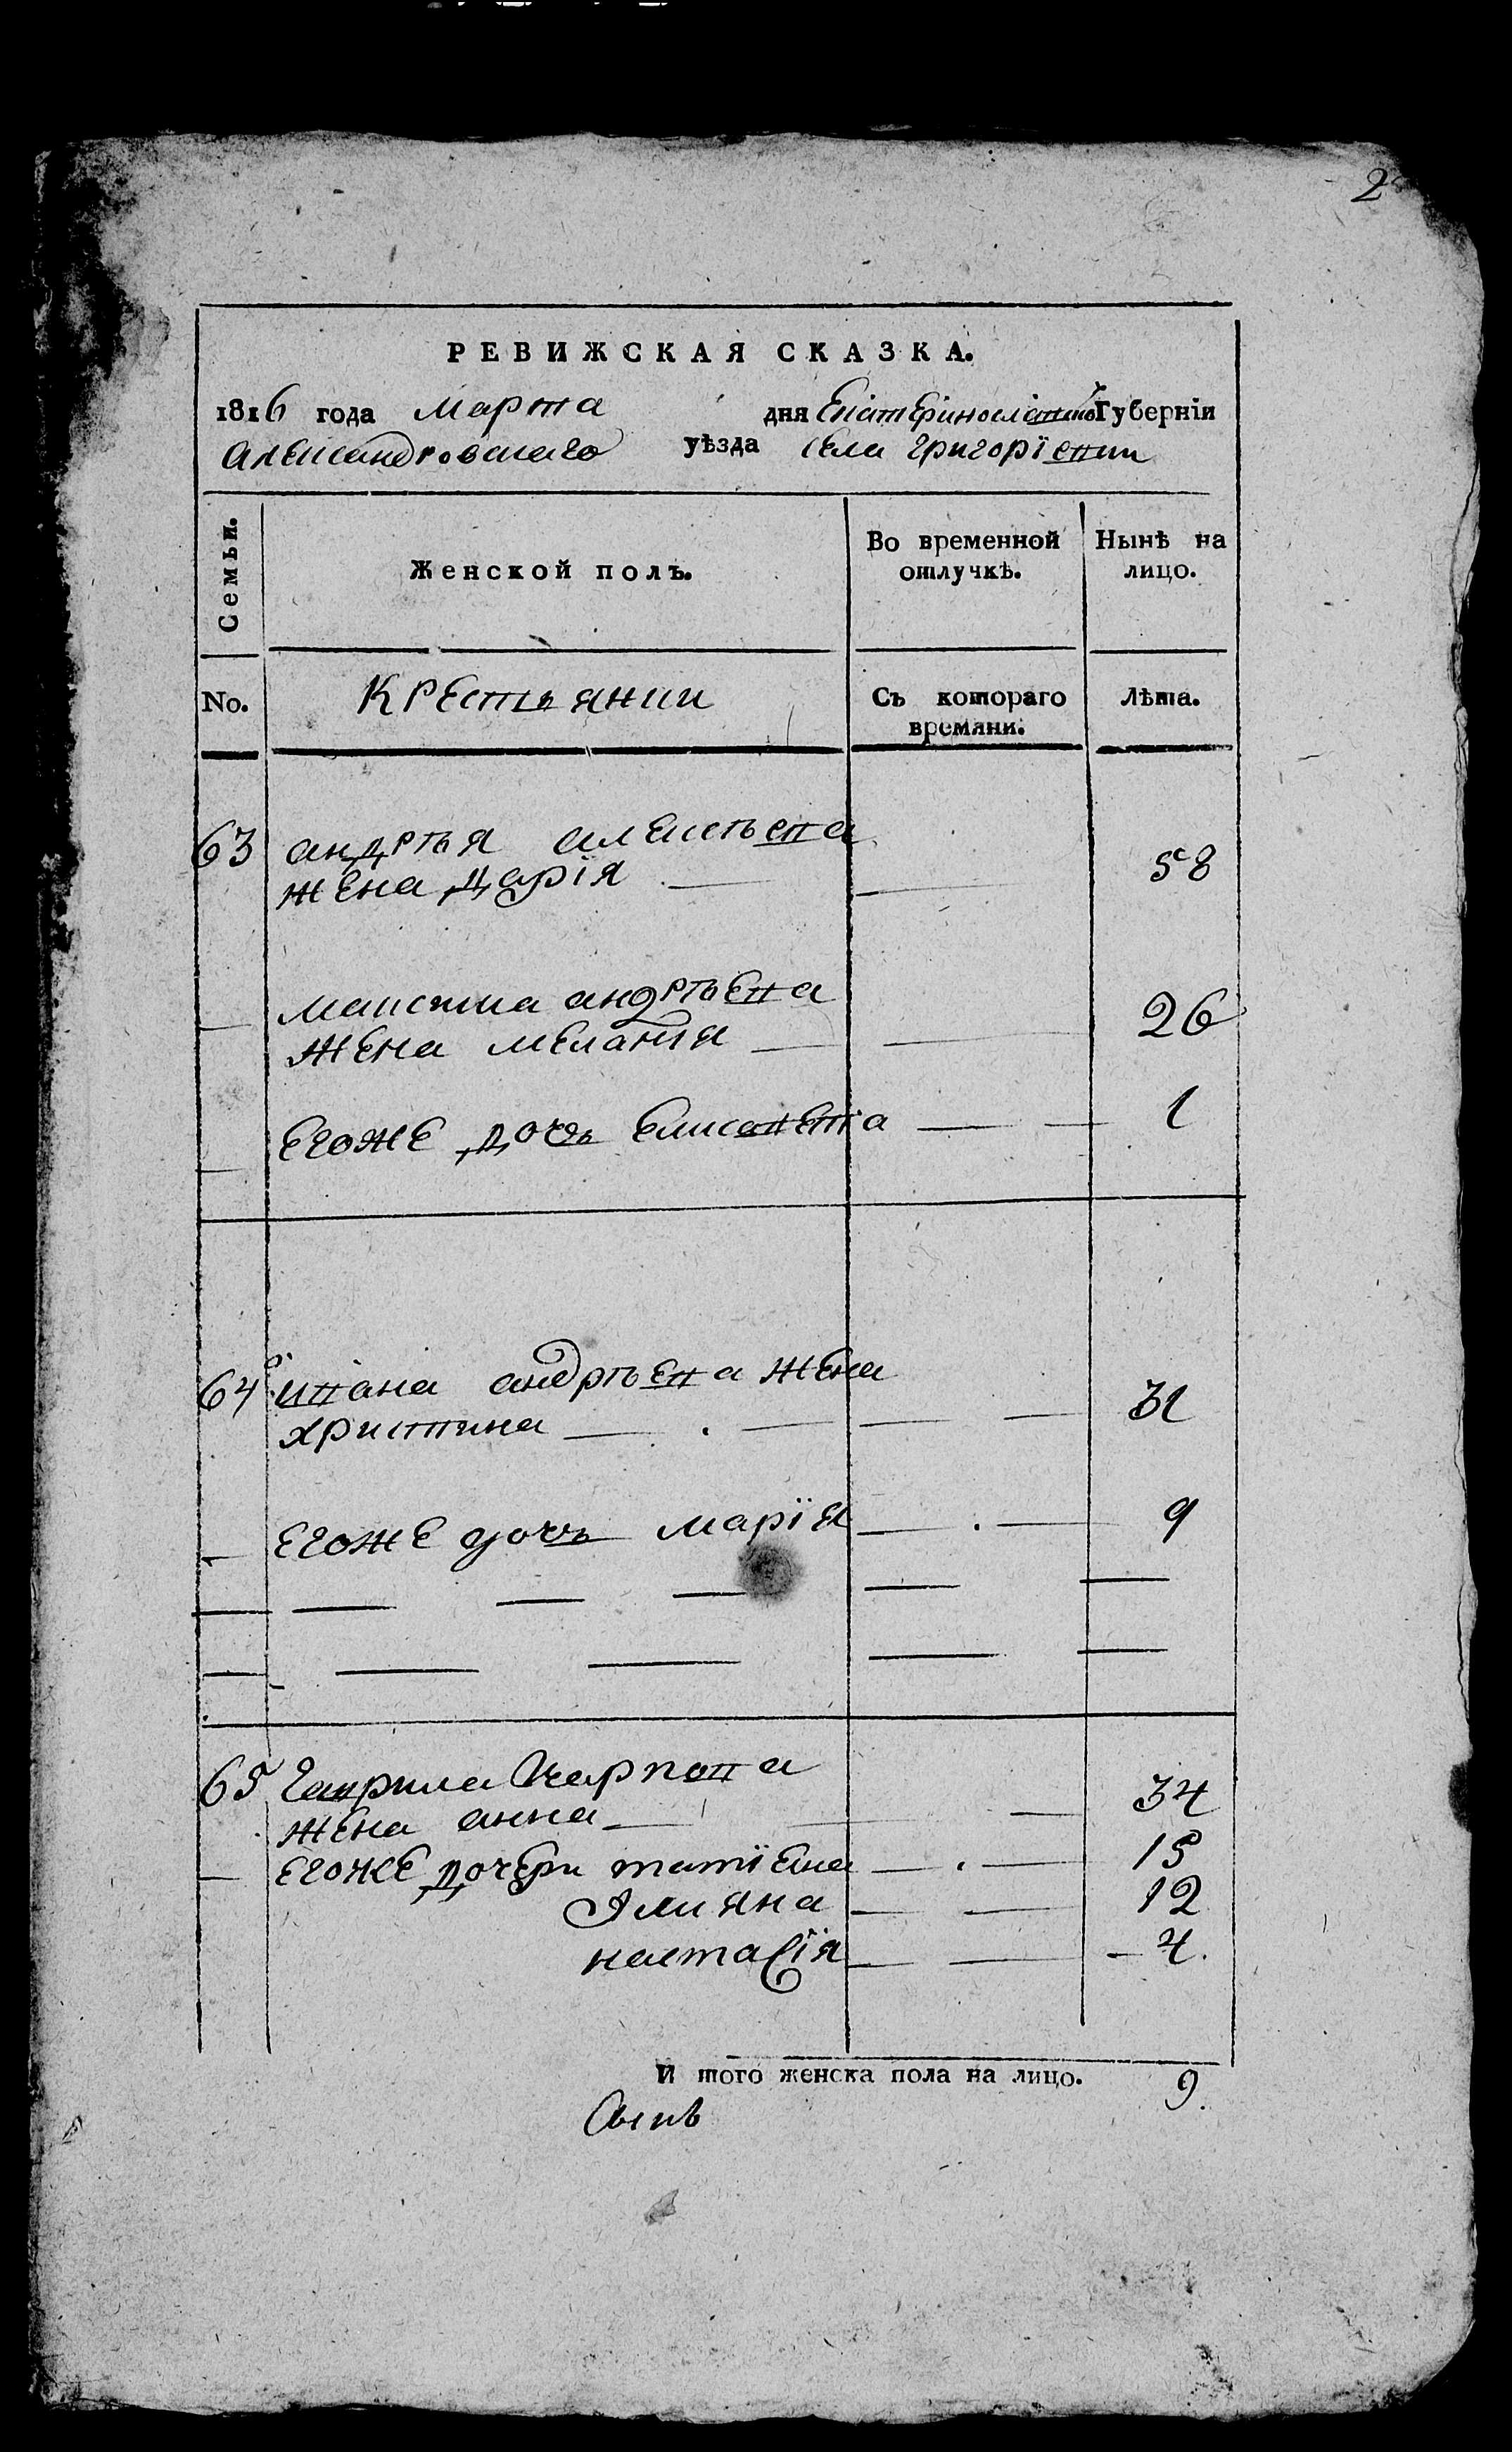 2
РЕВИЖСКАЯ СКАЗКА.
1816 года Марта дня Екатеринославской Губернїи
Александровскаго уѣзда села григорїевки
Семьи. Женской полъ. Во временной отлучкѣ. Нынѣ на лицо.
No. Крестьянки Съ котораго времяни. Лѣта.
63 андрѣя алексѣева
жена дарїя 58
максима андрѣева
жена меланїя 26
егоже дочь Елисавета 1
64 ивана андрѣева жена
христина 31
егоже дочь марїя 9
65 гаврила Карпова
жена анна 34
егоже дочери татїена 15
Улияна 12
настасїя 4.
И того женска пола на лицо. 9.